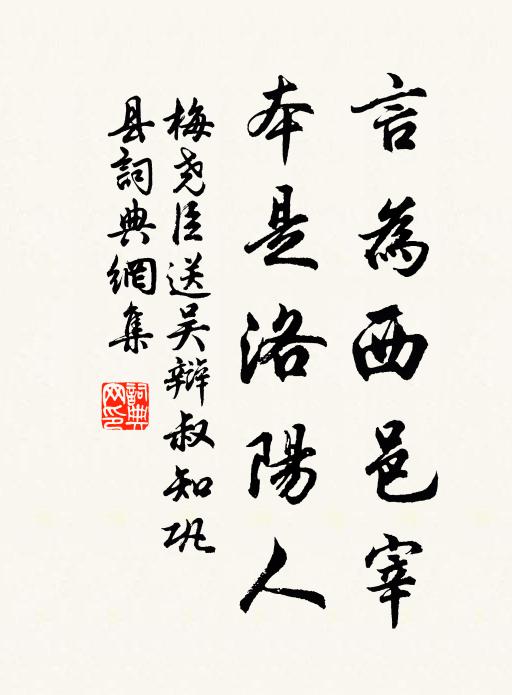 言為西邑宰
本是洛陽人
梅尧臣送吴辩叔知巩
县詞典網集
詞典
网印